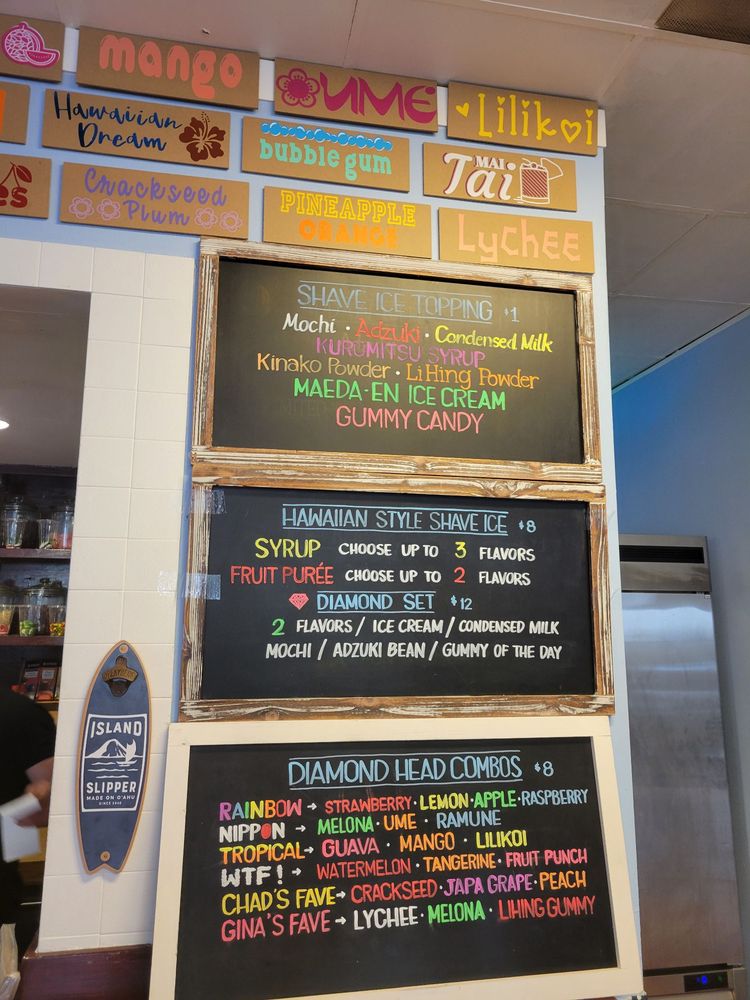 mango
UME
Lilikoi
Hawaiian Dream
bubble gum
MAI Tai
es
Crackseed Plum
PINEAPPLE ORANGE
LyCHEE
SHAVE ICE TOPPING $1
Mochi · Adzuki · Condensed Milk
KUROMITSU SYRUP
Kinako Powder · Li Hing Powder
MAEDA-EN ICE CREAM
GUMMY CANDY
HAWAIIAN STYLE SHAVE ICE $8
SYRUP CHOOSE UP TO 3 FLAVORS
FRUIT PURÉE CHOOSE UP TO 2 FLAVORS
DIAMOND SET $12
2 FLAVORS / ICE CREAM / CONDENSED MILK
MOCHI / ADZUKI BEAN / GUMMY OF THE DAY
ISLAND
SLIPPER
MADE ON O'AHU
SINCE 1946
DIAMOND HEAD COMBOS $8
RAINBOW → STRAWBERRY · LEMON · APPLE · RASPBERRY
NIPPON → MELONA · UME · RAMUNE
TROPICAL → GUAVA · MANGO · LILIKOI
WTF! → WATERMELON · TANGERINE · FRUIT PUNCH
CHAD'S FAVE → CRACKSEED · JAPA GRAPE · PEACH
GINA'S FAVE → LYCHEE · MELONA · LIHING GUMMY